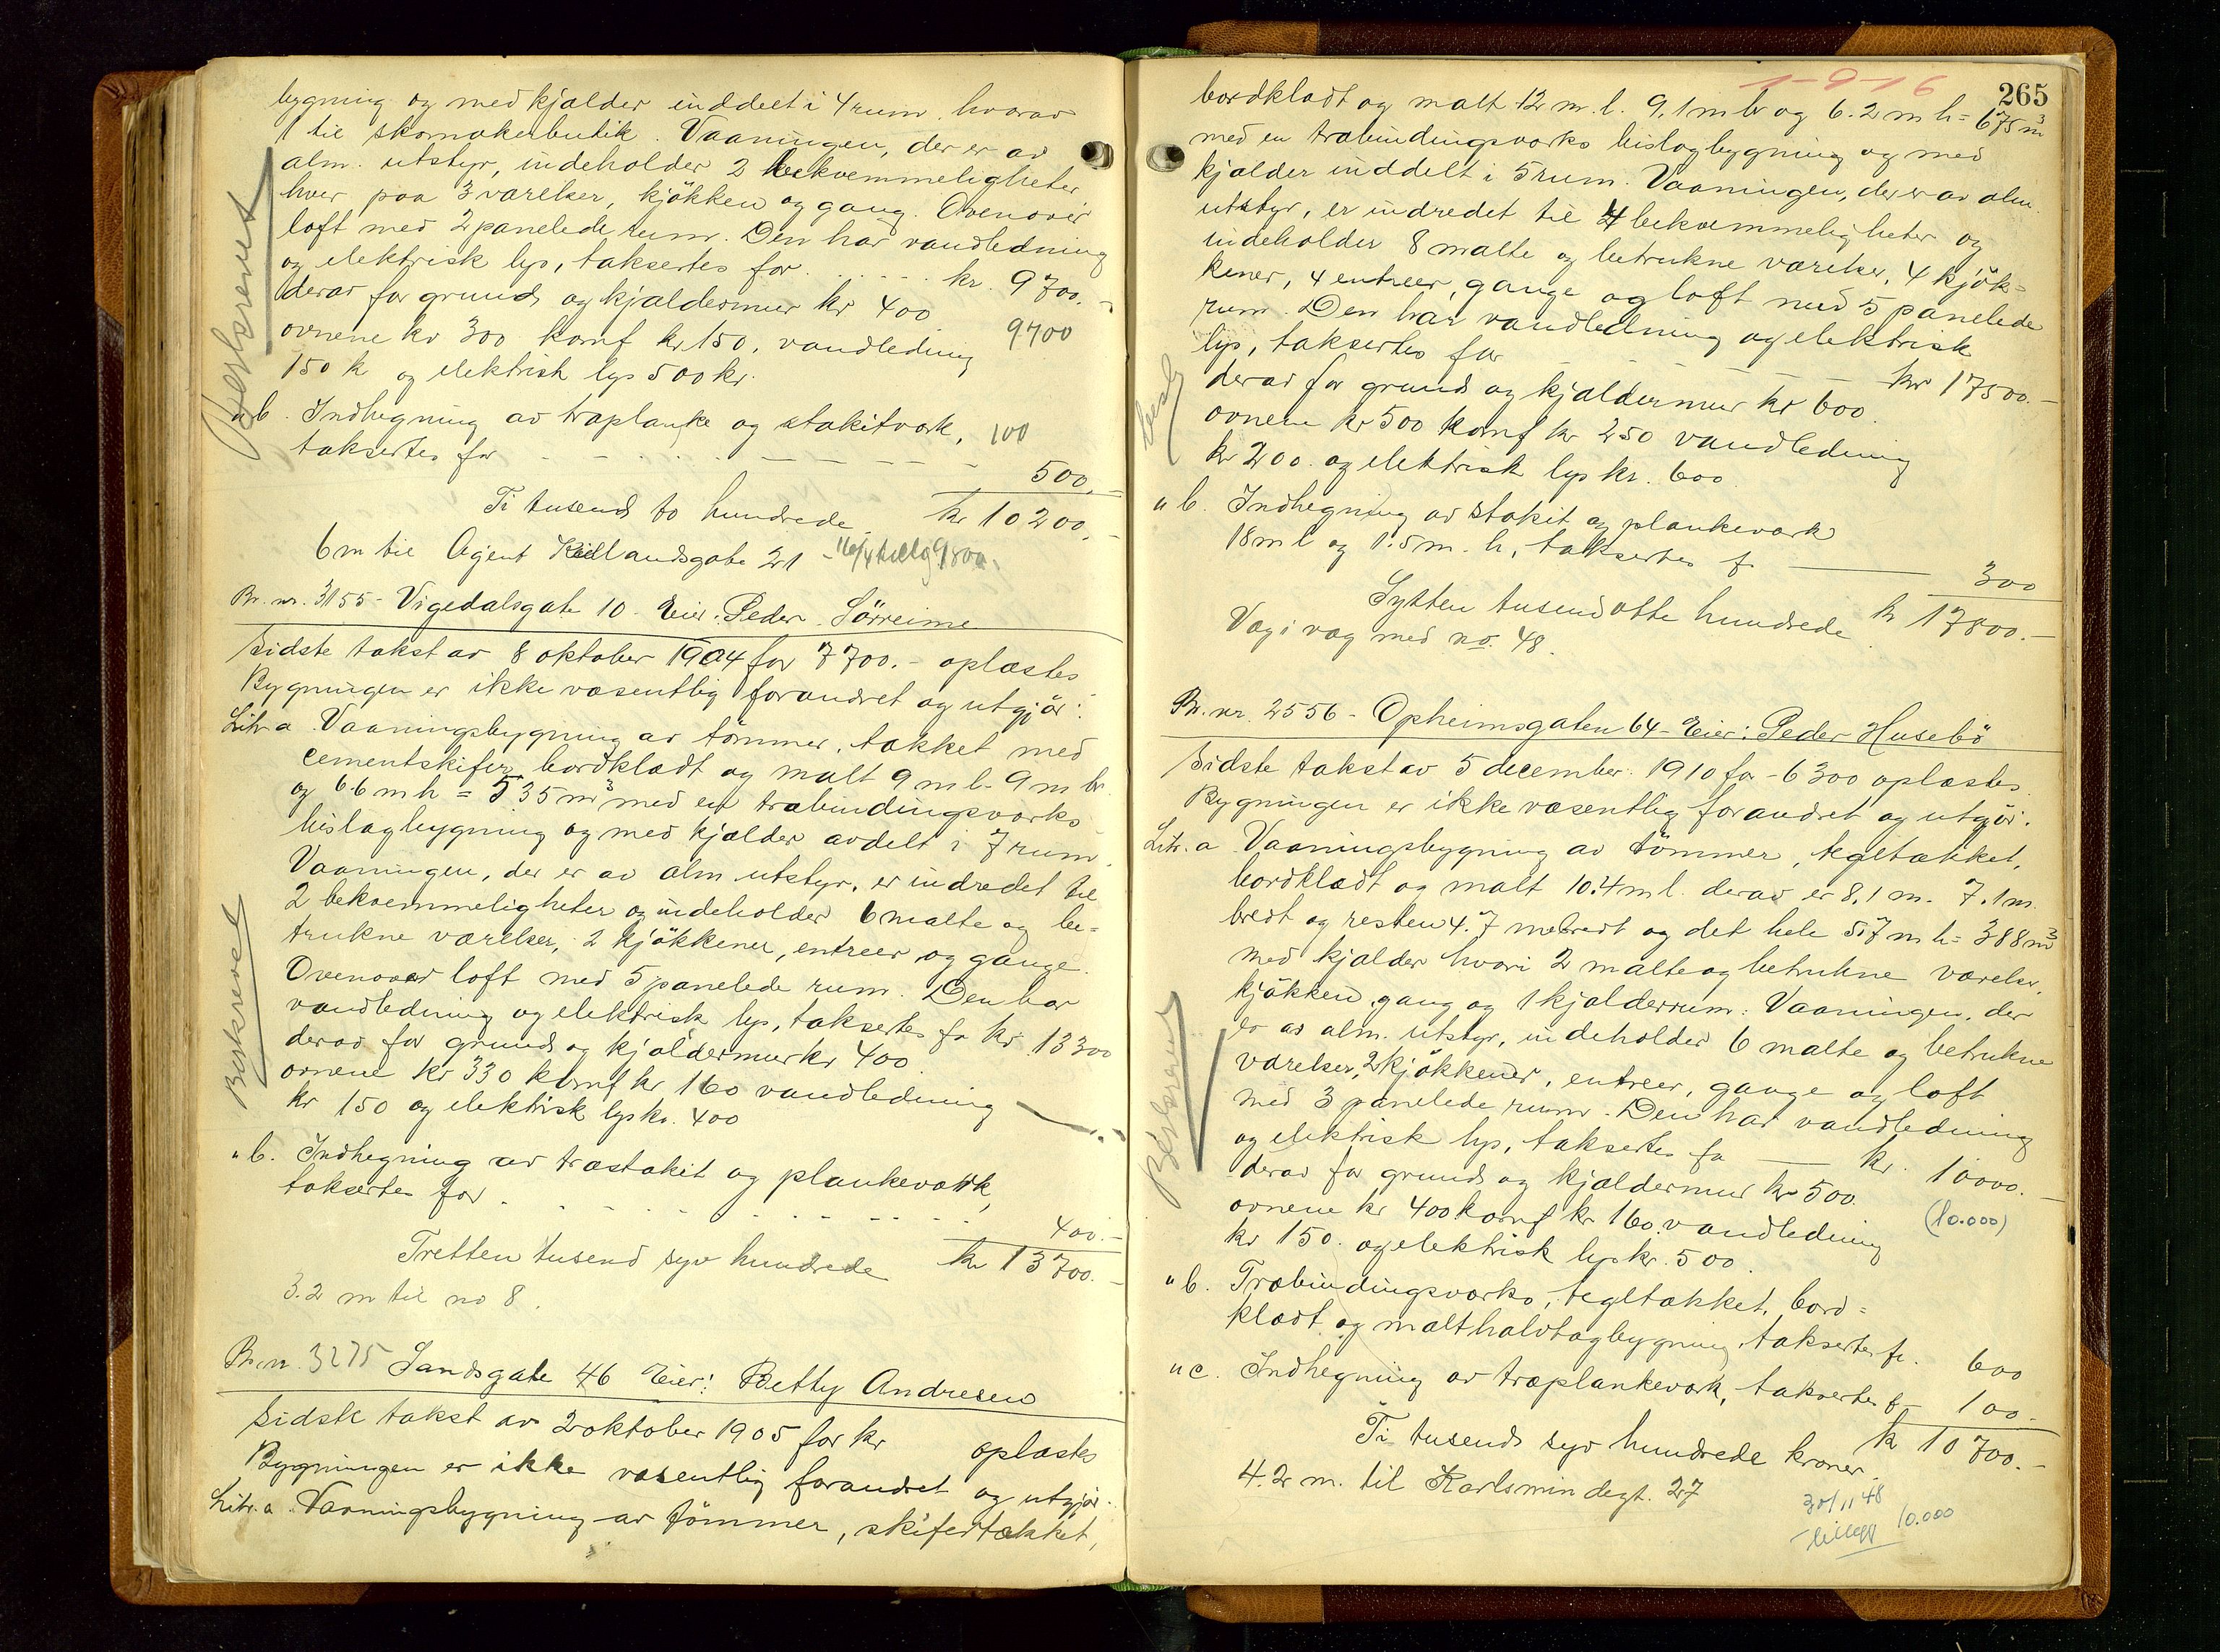 bygning og med kjælder inddelt i 4 rum, hvorav
1 til skomakerbutik. Vaaningen, der er av
alm. utstyr, indeholder 2 bekvemmeligheter
hver paa 3 værelser, kjökken og gang. Ovenover
loft med 2 panelede rum. Den har vandledning
og elektrisk lys, taksertes for . . . . . . kr. 9700.-
derav for grund og kjældermur kr 400
ovnene kr 300 komf kr 150, vandledning 9700
150 k og elektrisk lys 500 kr.
Beskrevet
" b. Indhegning av træplanke og stakitværk, 100
taksertes for - - - - - - - 500.-
Ti tusend to hundrede kr 10200.-
6 m til Agent Kiellandsgate 21 - 16/4 tillæg 9800.
Br. nr. 3155 - Vigedalsgate 10 - Eier: Peder Sörreime
Sidste takst av 8 oktober 1904 for 7700.- oplæstes
Bygningen er ikke væsentlig forandret og utgjör:
Litr. a Vaaningsbygning av tömmer, tækket med
cementskifer, bordklædt og malt 9 m l. 9 m br.
og 6.6 m h = 535 m³ med en træbindingsværks
bislagbygning og med kjælder avdelt i 7 rum.
Vaaningen, der er av alm utstyr, er indredet til
2 bekvemmeligheter og indeholder 6 malte og be=
trukne værelser, 2 kjökkener, entreer og gange.
Ovenover loft med 5 panelede rum. Den har
vandledning og elektrisk lys, taksertes for kr 13300
derav for grund og kjældermur kr 400.
ovnene kr 330 komf kr 160 vandledning
kr 150 og elektrisk lys kr. 400
Beskrevet
" b. Indhegning av træstakit og plankeværk,
taksertes for . - - - - - - - 400.-
Tretten tusend syv hundrede kr 13700.-
3.2 m til no 8.
Br. nr. 3275 Sandsgate 46 Eier: Betty Andresen
Sidste takst av 2 oktober 1905 for kr oplæstes
Bygningen er ikke væsentlig forandret og utgjör.
Litr. a. Vaaningsbygning av tömmer, skifertækket,
1-9-16
265
bordklædt og malt 12 m. l. 9,1 m br og 6.2 m h = 675 m³
med en træbindingsværks bislagbygning og med
kjælder inddelt i 5 rum. Vaaningen, der er av alm.
utstyr, er indredet til 4 bekvemmeligheter og
indeholder 8 malte og betrukne værelser, 4 kjök=
kener, 4 entreer, gange og loft med 5 panelede
rum. Den har vandledning og elektrisk
lys, taksertes for - - - - - kr 17500.-
derav for grund og kjældermur kr 600
ovnene kr 500 komf kr 250 vandledning
kr 200. og elektrisk lys kr. 600
Besk
" b. Indhegning av stakit og plankeværk
18 m l og 1.5 m. h, taksertes f. 300
Sytten tusend otte hundrede kr 17800.-
Væg i væg med no. 48.
Br. nr. 2556 - Opheimsgaten 64 - Eier: Peder Husebö
Sidste takst av 5 december 1910 for - 6300 oplæstes.
Bygningen er ikke væsentlig forandret og utgjör.
Litr. a Vaaningsbygning av tömmer, tegltækket,
bordklædt og malt 10.4 m l. derav er 8,1 m. 7.1 m
bredt og resten 4.7 m bredt og det hele 5.7 m h = 388 m³
med kjælder hvori 2 malte og betrukne værelser,
kjökken, gang og 1 kjælderrum. Vaaningen, der
er av alm. utstyr, indeholder 6 malte og betrukne
værelser, 2 kjökkener, entreer, gange og loft
med 3 panelede rum. Den har vandledning
og elektrisk lys, taksertes for kr. 10000.-
derav for grund og kjældermur kr 500.
ovnene kr 400 komf kr 160. vandledning (10.000)
kr 150. og elektrisk lys kr. 500.
Beskrevet
" b. Træbindingsværks, tegltækket, bord=
klædt og malt halvtagbygning, taksertes fr. 600
" c. Indhegning av træplankeværk, taksertes f. 100.-
Ti tusend syv hundrede kroner. kr 10700.-
4.2 m. til Karlsmindegt. 27
30/11 48
tillegg 10.000